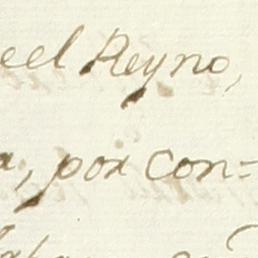 eel Reyno,
a, por con=